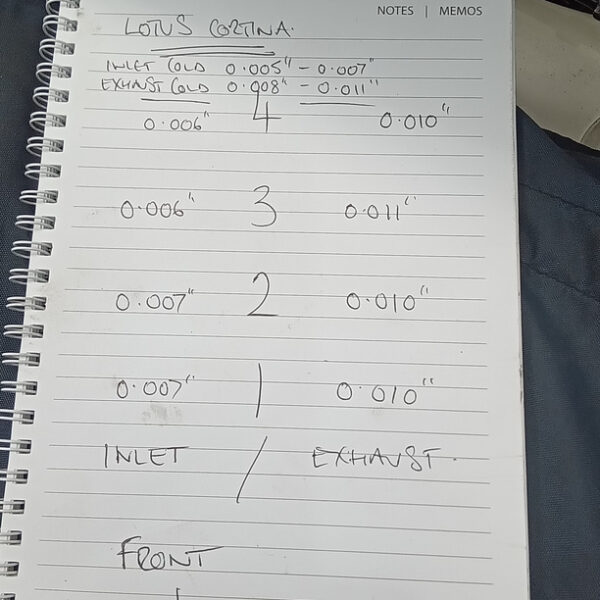 NOTES | MEMOS
LOTUS CORTINA.
INLET COLD 0.005" - 0.007"
EXHAUST COLD 0.008" - 0.011"
0.006" 4 0.010"
0.006" 3 0.011"
0.007" 2 0.010"
0.007" 1 0.010"
INLET / EXHAUST.
FRONT